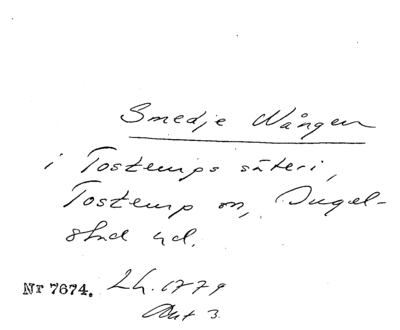 Smedje Wången
i Tosterups säteri,
Tosterup sn, Ingel-
stad hd.
Nr 7674. Lh. 1779
Akt 3.